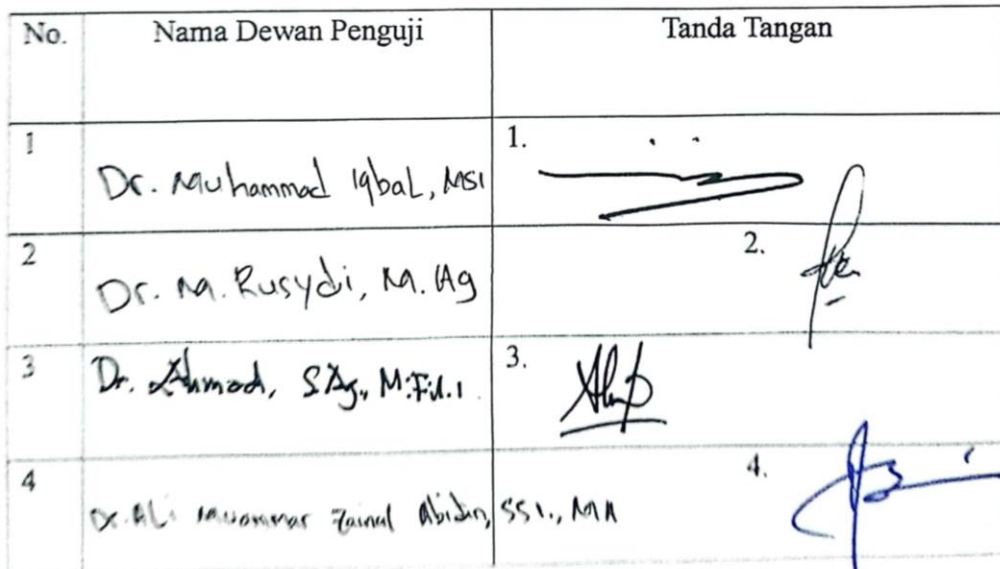 No. Nama Dewan Penguji Tanda Tangan
1 Dr. Muhammad Iqbal, MSI 1.
2 Dr. M. Rusydi, M.Ag 2.
3 Dr. Ahmad, S.Ag., M.Fil.I 3.
4 Dr. Ali Muammar Zainul Abidin, SSI., MA 4.